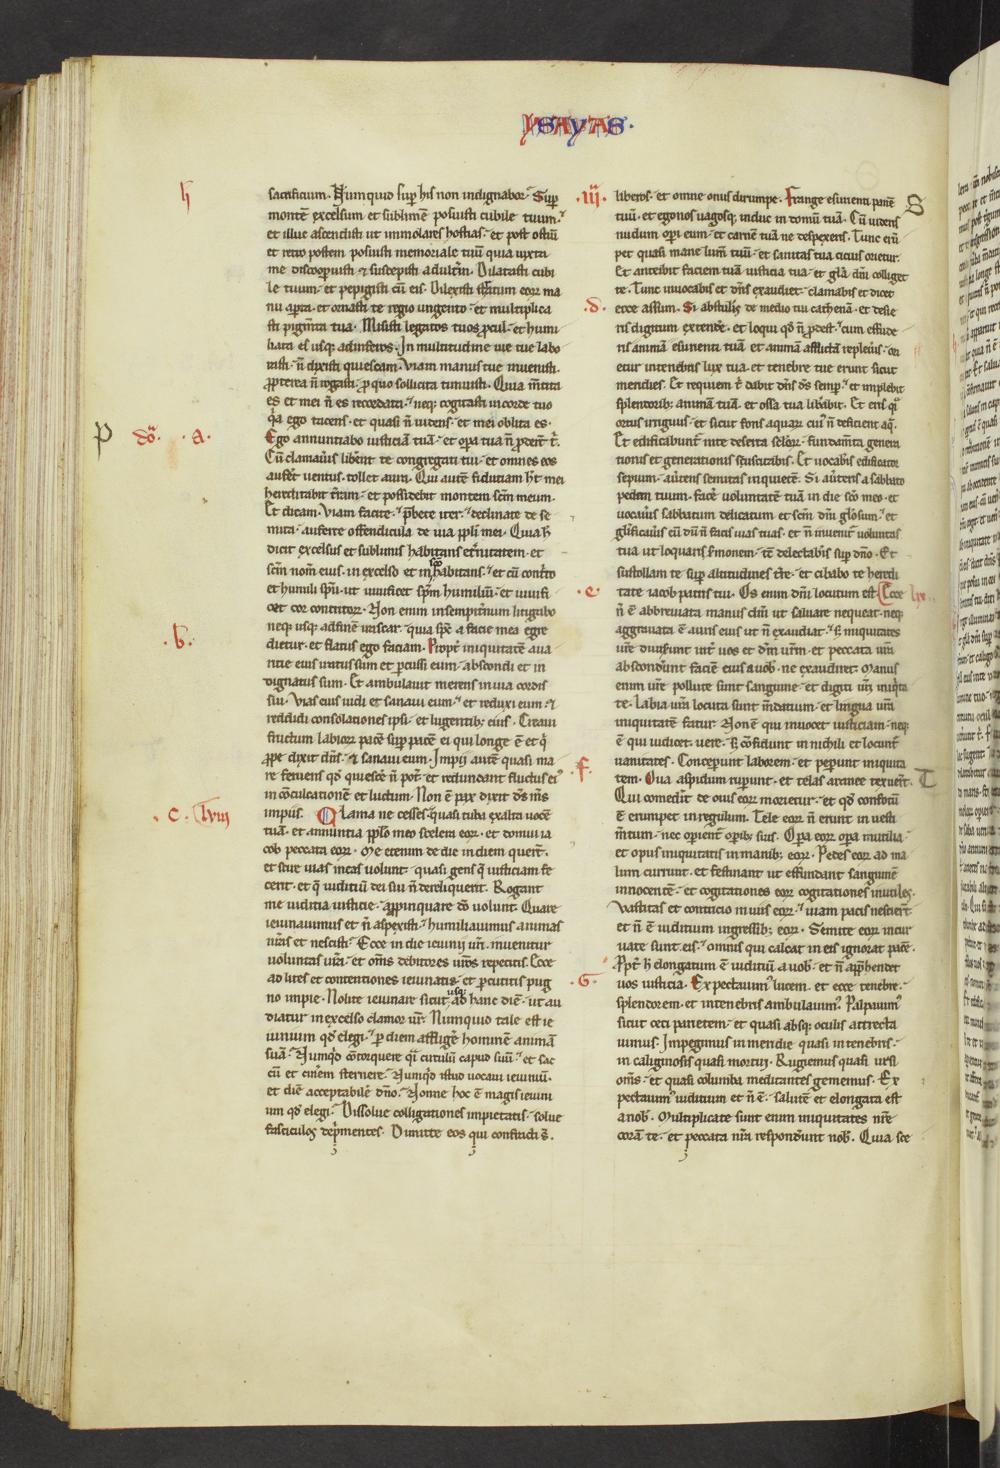 ISAYAS.
h
sacrificium. Numquid sup his non indignabor. Sup
montē excelsum et sublimē posuisti cubile tuum.
et illuc ascendisti ut immolares hostias. et post ostiū
et retro postem posuisti memoriale tuū quia iuxta
me discoopuisti & suscepisti adultm. Dilatasti cubi
le tuum. et pepigisti cū eis. Dilexisti stratum eoꝝ ma
nu apta. et ornasti te regio ungento. et multiplica
sti pigmta tua. Misisti legatos tuos pcul. et humi
liata es usq; ad inferos. In multitudine uie tue labo
rasti. n̄ dixisti quiescam. Viam manus tue inuenisti.
ppterea n̄ rogasti. pro quo sollicita timuisti. Quia mtita
es et mei n̄ es recordata. neq; cogitasti in corde tuo
qa ego tacens. et quasi n̄ uidens. et mei oblita es.
P dō. .a.
Ego annuntiabo iusticiā tuā. et opa tua n̄ pdert t.
Cū clamauis libent te congregati tui. et omnes eos
aufet uentus. tollet aura. Qui autē fiduciam ht mei
hereditabit tram. et possidebit montem scm meum.
Et dicam. Viam facite. pbete iter. declinate de se
mita. auferte offendicula de uia ppli mei. Quia h
dicit excelsus et sublimis habitans etnitatem. et
scm nom eius. in excelso et in sco habitans. et cū contto
et humili spu. ut uiuificet spm humiliū. et uiuifi
cet cor contritoꝝ. Non enim in sempitnum litigabo
neq; usq; ad finē irascar. quia spc a facie mea egre
.b.
dietur. et flatus ego faciam. Propt iniquitatē aua
ritie eius iratus sum et percussi eum. abscondi et in
dignatus sum. Et ambulauit merens in uia cordis
sui. Vias eius uidi et sanaui eum. et reduxi eum. &
reddidi consolationes ipsi. et lugentib; eius. Creaui
fructum labioꝝ pacē sup pacē ei qui longe ē et q
ppe dixit dns. & sanaui eum. Impii autē quasi ma
re feruens qd quiesce n̄ pot. et redundant fluctus ei
in cōculcationē et lutum. Non ē pax dixit ds ms
. C . lviii
impiis. Clama ne cesses. quasi tuba exalta uocē
tuā. et annuntia pplo meo scelera eoꝝ. et domui ia
cob peccata eoꝝ. Me etenim de die in diem querit.
et scire uias meas uolunt. quasi gens q iusticiam fe
cerit. et q iuditiū dei sui n̄ dereliquerit. Rogant
me iuditia iusticie. appinquare do uolunt. Quare
ieiunauimus et n̄ aspexisti. humiliauimus animas
nras et nescisti. Ecce in die ieiunij uri. inuenitur
uoluntas ura. et oms debitores uros repetitis. Ecce
ad lites et contentiones ieiunatis. et pcutitis pug
no impie. Nolite ieiunare sicut usq; ad hanc diē. ut au
diatur in excelso clamor ur. Numquid tale est ie
iunium qd elegi. p diem affligere hominē animā
suā. Numqd cōtorquere qi circulū capud suū. et sac
cū et cinem sternere. Numqd istud uocaui ieiuniū.
et diē acceptabilē dno. Nonne hoc ē magis ieiuni
um qd elegi. Dissolue colligationes impietatis. solue
fasciculos depmentes. Dimitte eos qui confracti s.
.iij.
liberos. et omne onus dirumpe. Frange esurienti panē
tuū. et egenos uagosq; induc in domū tuā. Cū uideris
nudum opi eum. et carnē tuā ne despexeris. Tunc erū
pet quasi mane lum tuū. et sanitas tua citius orietur.
Et anteibit faciem tuā iusticia tua. et gla dm colliget
te. Tunc inuocabis et dns exaudiet. clamabis et dicet
.d.
ecce assum. Si abstulis de medio tui cathenā. et desie
ris digitum extende. et loqui qd n̄ pdest. cum effude
ris animā esurienti tuā et animā afflictā repleuis. ori
etur in tenebris lux tua. et tenebre tue erunt sicut
meridies. Et requiem t dabit dns ds semp. et implebit
splendorib; animā tuā. et ossa tua libabit. Et eris qi
ortus irriguus. et sicut fons aquaꝝ cui n̄ deficient aq.
Et edificabunt in te deserta seloꝝ. fundamta genera
tionis et generationis suscitabis. Et uocabis edificator
sepium. auertens semitas iniquietē. Si auteris a sabbato
pedem tuum. face uoluntatē tuā in die sco meo. et
uocauis sabbatum delicatum et scm dni glosum. et
glificauis eū dū n̄ facis uias tuas. et n̄ inuenit uoluntas
tua ut loquaris smonem. tc delectabis sup dno. Et
sustollam te sup altitudines tre. et cibabo te heredi
.e.
tate iacob patris tui. Os enim dni locutum est. Ecce lix.
n̄ ē abbreuiata manus dni ut saluare nequeat. neq;
aggrauata ē auris eius ut n̄ exaudiat. S iniquitates
ure diuiserunt int uos et dm urm. et peccata ura
absconderunt faciē eius a uob. ne exaudiret. Manus
enim ure pollute sunt sanguine. et digiti uri iniqta
te. Labia ura locuta sunt mdatium. et lingua ura
iniquitatē fatur. Non ē qui inuocet iusticiam. neq;
ē qui iudicet uere. S cōfidunt in nichili et locunt
uanitates. Conceperunt laborem. et pepunt iniquita
.f.
tem. Oua aspidum ruperunt. et telas aranee texuert. T
Qui comederit de ouis eoꝝ morietur. et qd confotū
ē erumpet in regulum. Tele eoꝝ n̄ erunt in uesti
mtum. nec operient opib; suis. Opa eoꝝ opa inutilia.
et opus iniquitatis in manib; eoꝝ. Pedes eoꝝ ad ma
lum currunt. et festinant ut effundant sanguinē
innocentē. et cogitationes eoꝝ cogitationes inutiles.
Vastitas et contricio in uiis eoꝝ. uiam pacis nesciert.
et n̄ ē iuditium in gressib; eoꝝ. Semite eoꝝ incur
uate sunt eis. omnis qui calcat in eis ignorat pacē.
Ppt h elongatum ē iuditiū a uob. et n̄ apphendet
.G.
uos iusticia. Expectauim lucem. et ecce tenebre.
splendorem. et in tenebris ambulauim. Palpauim
sicut ceci parietem. et quasi absq; oculis attrecta
uimus. Impegimus in meridie quasi in tenebris.
in caliginosis quasi mortui. Rugiemus quasi ursi
oms. et quasi columbe meditantes gememus. Ex
pectauim iuditium et n̄ ē. salutē et elongata est
a nob. Multiplicate sunt enim iniquitates nre
corā te. et peccata nra respondunt nob. Quia sce